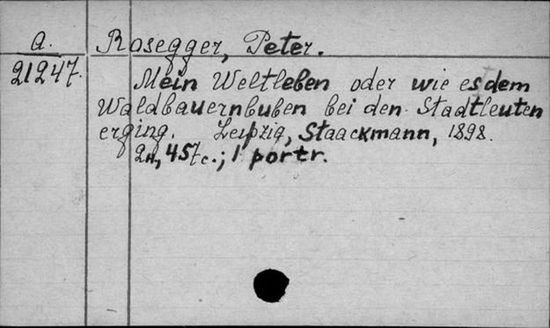 a. Rosegger, Peter.
21247. Mein Weltleben oder wie es dem
Waldbauernbuben bei den Stadtleuten
erging. Leipzig, Staackmann, 1898.
457c.; 1 portr.